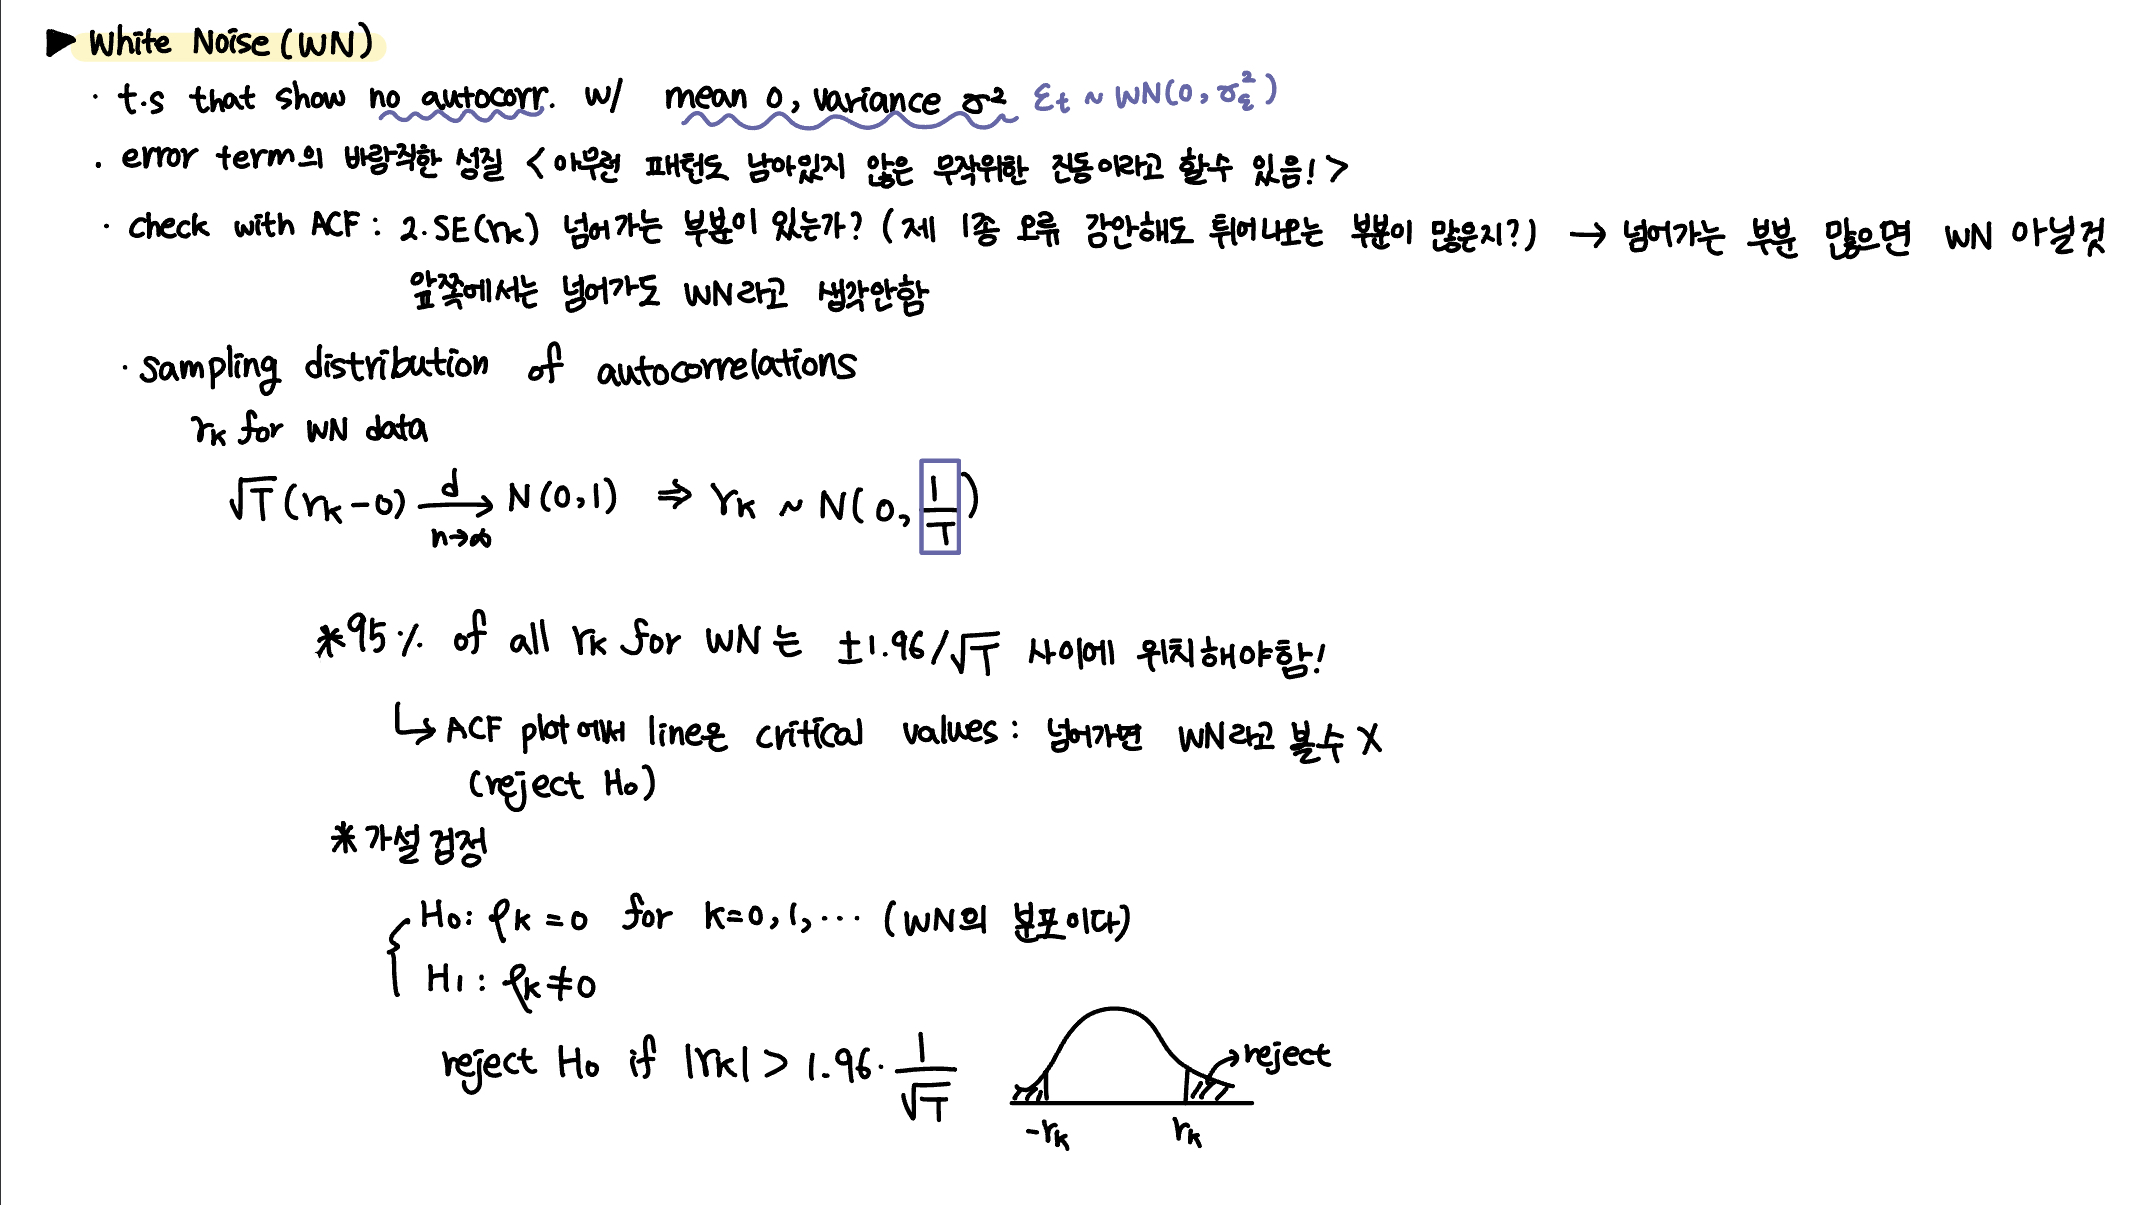 ▶ White Noise (WN)
· t.s that show no autocorr. w/ mean 0, variance σ² εt ~ WN(0, σε²)
· error term의 바람직한 성질 <아무런 패턴도 남아있지 않은 무작위한 진동이라고 할수 있음!>
· check with ACF : 2·SE(rk) 넘어가는 부분이 있는가? (제 1종 오류 감안해도 튀어나오는 부분이 많은지?) → 넘어가는 부분 많으면 WN 아닐것
앞쪽에서는 넘어가도 WN라고 생각안함
· sampling distribution of autocorrelations
rk for WN data
√T (rk - 0) →d n→∞ N(0,1) ⇒ rk ~ N(0, 1/T)
*95% of all rk for WN는 ±1.96/√T 사이에 위치해야함!
↳ ACF plot에서 line은 critical values : 넘어가면 WN라고 볼수 X
(reject H₀)
*가설 검정
H₀: ρk = 0 for k=0,1,··· (WN의 분포이다)
H₁ : ρk ≠ 0
reject H₀ if |rk| > 1.96· 1/√T
reject
-rk rk